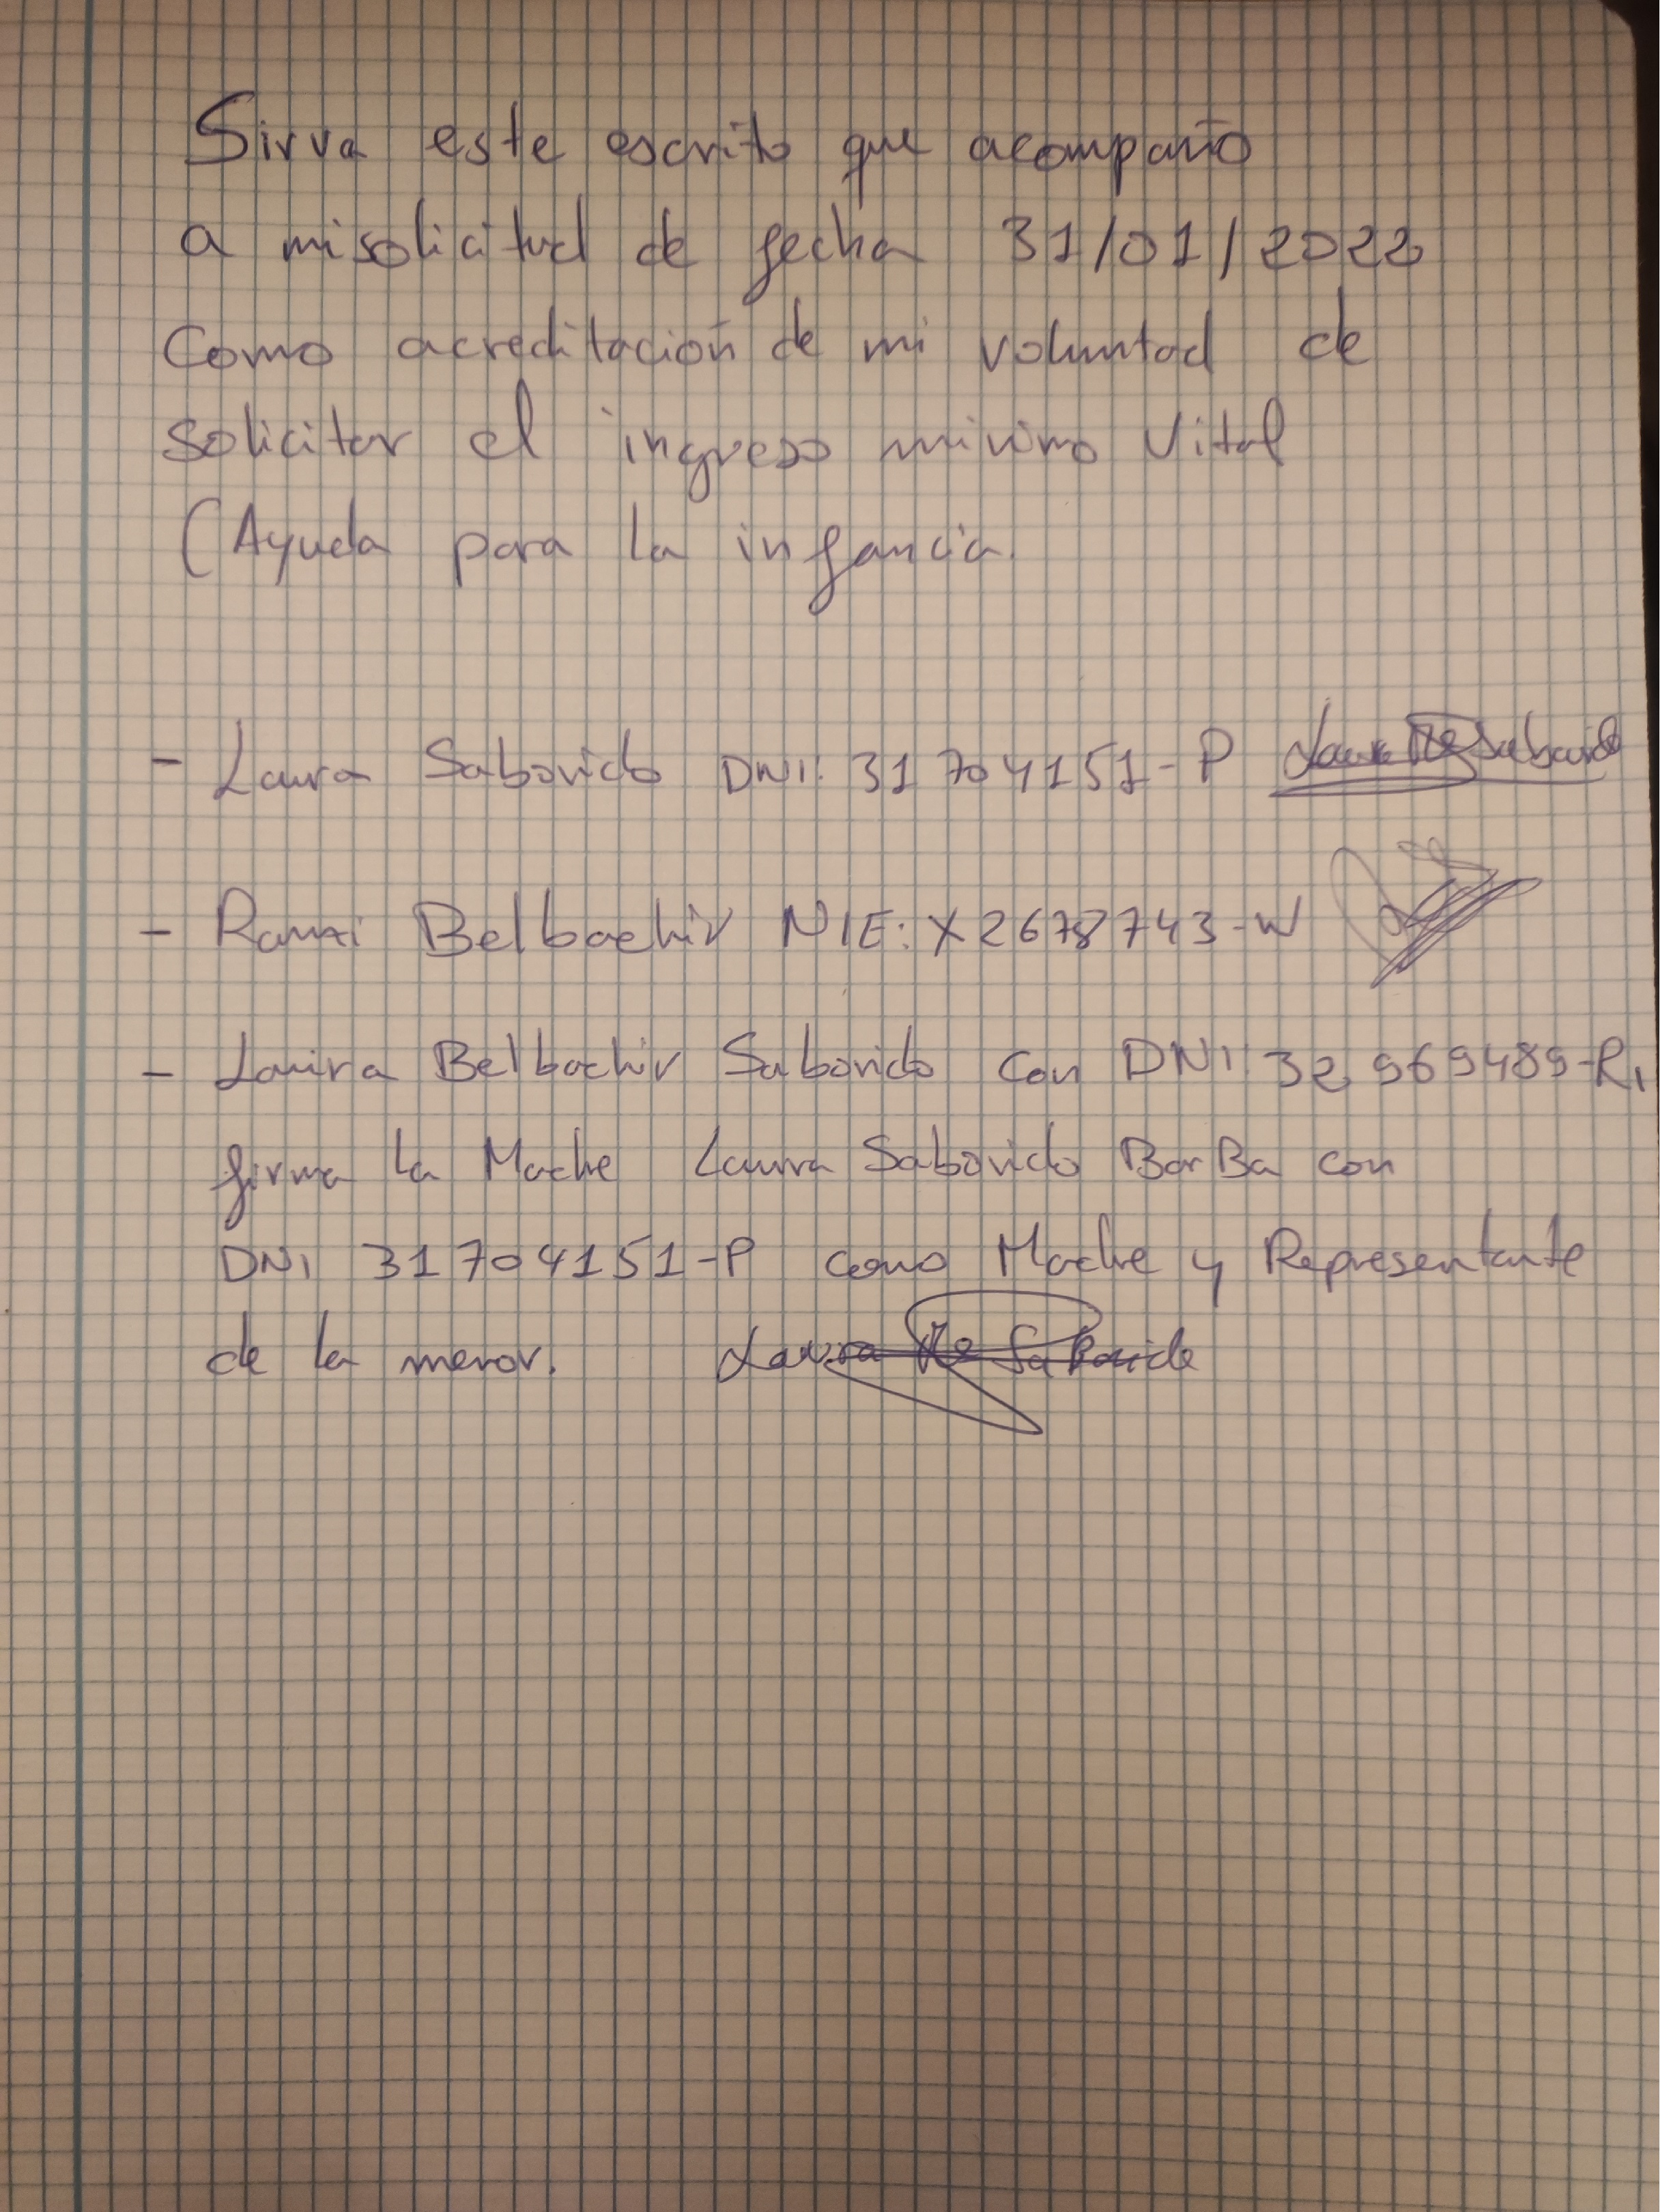 Sirva este escrito que acompaño
a mi solicitud de fecha 31/01/2022
Como acreditación de mi voluntad de
solicitar el ingreso minimo Vital
(Ayuda para la infancia.
- Laura Saborido DNI: 31704151-P Laura Mª Saborido
- Ramzi Belbachir NIE: X2678743-W
- Laura Belbachir Saborido con DNI: 32969489-R,
firma la Madre Laura Saborido BarBa con
DNI 31704151-P como Madre y Representante
de la menor. Laura Mª Saborido